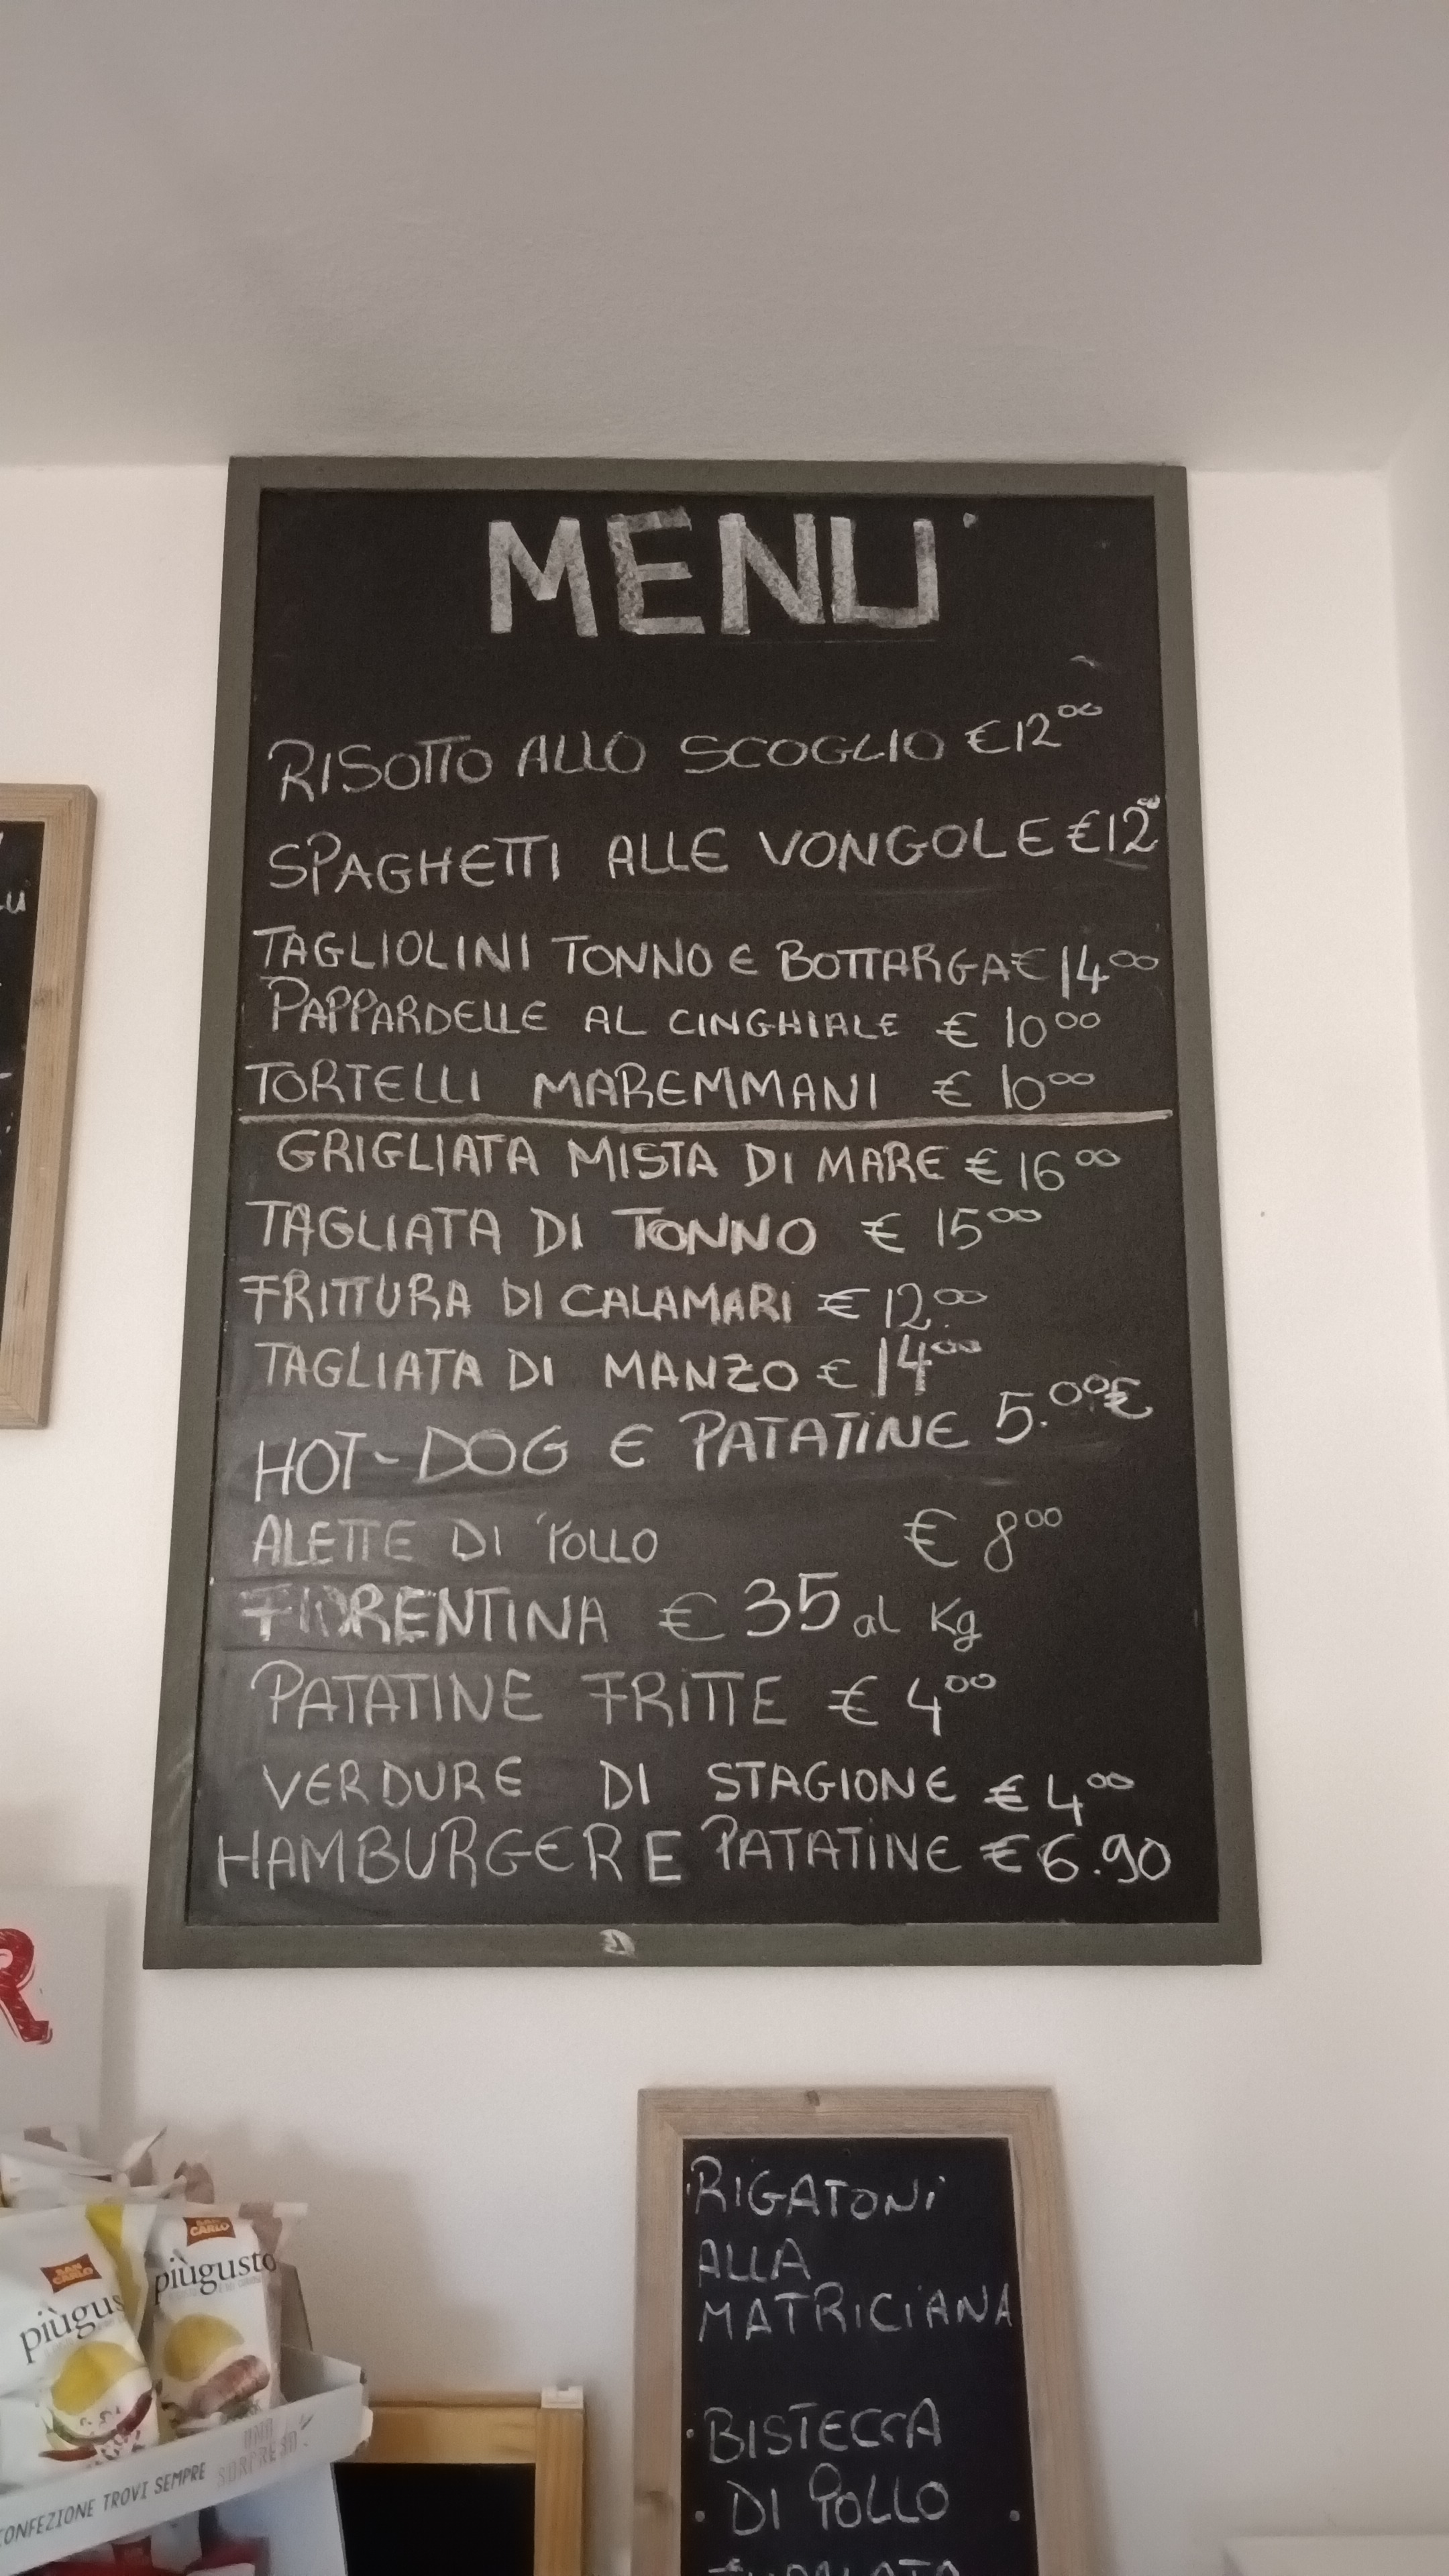 MENU'
RISOTTO ALLO SCOGLIO €12⁰⁰
SPAGHETTI ALLE VONGOLE €12⁰⁰
TAGLIOLINI TONNO E BOTTARGA € 14⁰⁰
PAPPARDELLE AL CINGHIALE € 10⁰⁰
TORTELLI MAREMMANI € 10⁰⁰
GRIGLIATA MISTA DI MARE € 16⁰⁰
TAGLIATA DI TONNO € 15⁰⁰
FRITTURA DI CALAMARI € 12.⁰⁰
TAGLIATA DI MANZO € 14⁰⁰
HOT-DOG E PATATINE 5.⁰⁰€
ALETTE DI POLLO € 8⁰⁰
FIORENTINA € 35 al Kg
PATATINE FRITTE € 4⁰⁰
VERDURE DI STAGIONE € 4⁰⁰
HAMBURGER E PATATINE € 6.90
R
RIGATONI
ALLA
MATRICIANA
BISTECCA
DI POLLO
SAN CARLO
piùgusto
SAN CARLO
piùgus
UNA SORPRESA!
CONFEZIONE TROVI SEMPRE